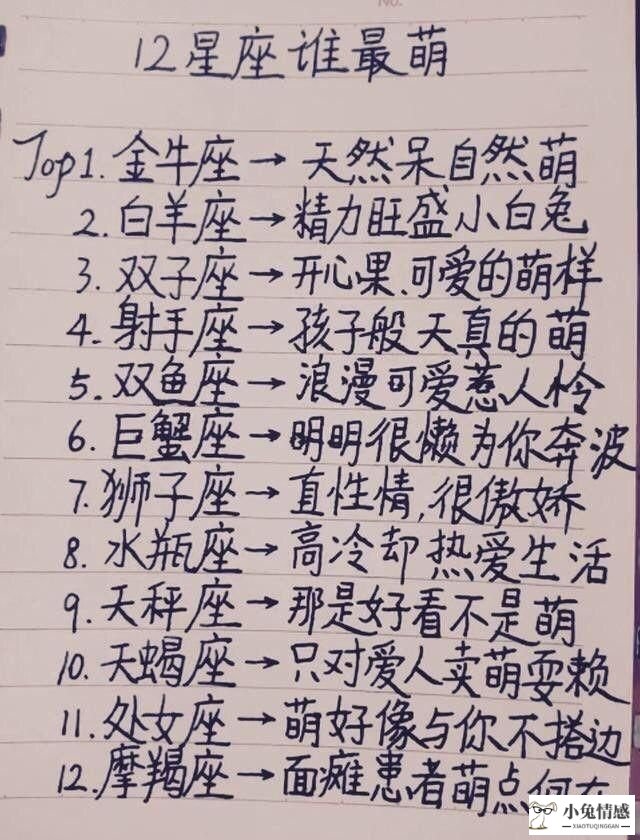 No.
12星座谁最萌
Top1.金牛座→天然呆自然萌
2.白羊座→精力旺盛小白兔
3.双子座→开心果.可爱的萌样
4.射手座→孩子般天真的萌
5.双鱼座→浪漫可爱惹人怜
6.巨蟹座→明明很懒为你奔波
7.狮子座→直性情,很傲娇
8.水瓶座→高冷却热爱生活
9.天秤座→那是好看不是萌
10.天蝎座→只对爱人卖萌耍赖
11.处女座→萌好像与你不搭边
12.摩羯座→面瘫患者萌点何在
小兔情感
XIAOTUQINGGAN